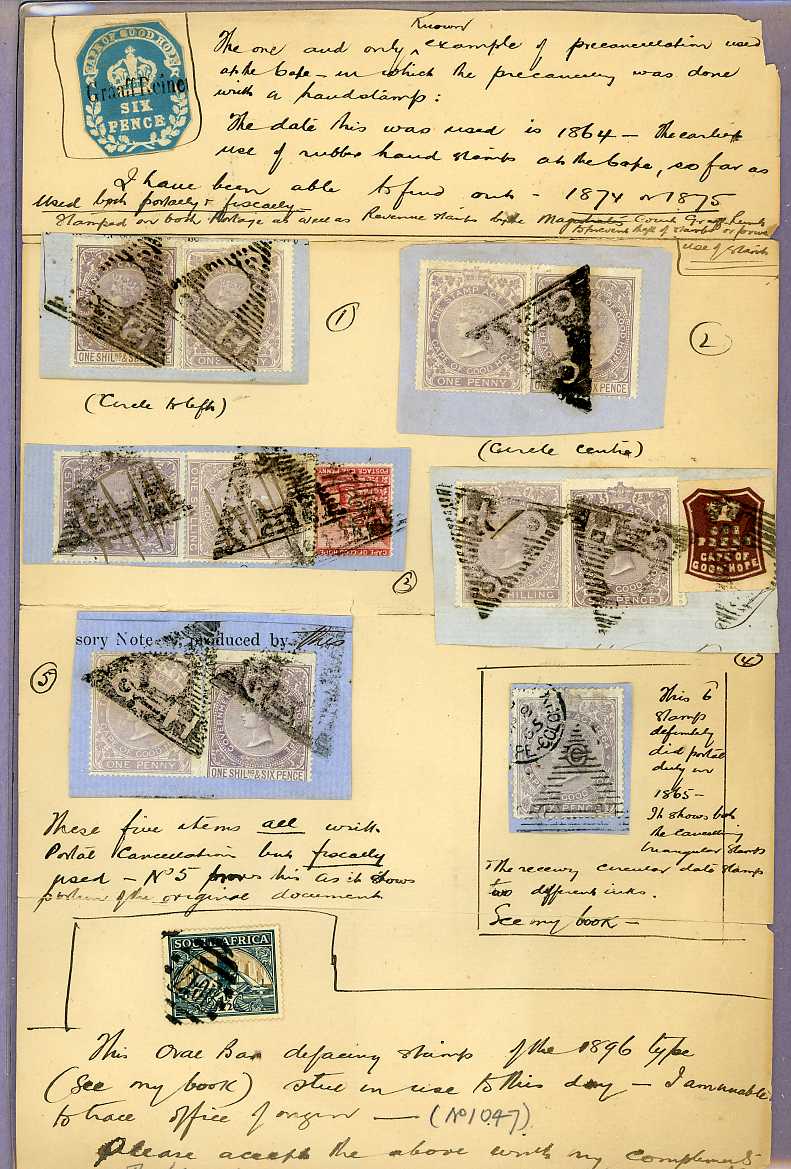 Known
The one and only example of precancellation used
at the Cape - in which the precancelling was done
with a handstamp:
The date this was used is 1864 - The earliest
use of rubber hand stamps at the Cape, so far as
I have been able to find out - 1874 or 1875
used both postally & fiscally -
Stamped on both Postage as well as Revenue stamps by the Magistrates Court Graaff Reinet
to prevent theft of stamps or
use of stamps
CAPE OF GOOD HOPE
Graaff Reine
SIX
PENCE
ONE SHILNG & SIX
ONE PENNY
(1)
(Circle to left)
THE STAMP ACT
CAPE OF GOOD HOPE
ONE PENNY
SIX PENCE
(2)
(Circle centre)
ONE SHILLING
POSTAGE ONE PENNY
CAPE OF GOOD HOPE
3
SHILLING
PENCE
CAPE OF
GOOD HOPE
(4)
sory Note produced by this
CAPE OF GOOD
ONE PENNY
GOVERNMENT
ONE SHILNG & SIX PENCE
(5)
These five items all with
Postal Cancellation but fiscally
used - No 5 proves this as it shows
portion of the original document
COLO
PENCE
This 6
stamp
definitely
did postal
duty in
1865 -
It shows both
the cancelling
triangular stamps
& the receiving circular date stamps
two different inks.
See my book -
SOUTH AFRICA
This Oval Bar defacing stamp of the 1896 type
(See my book) still in use to this day - I am unable
to trace office of origin - (No 1047)
Please accept the above with my compliments